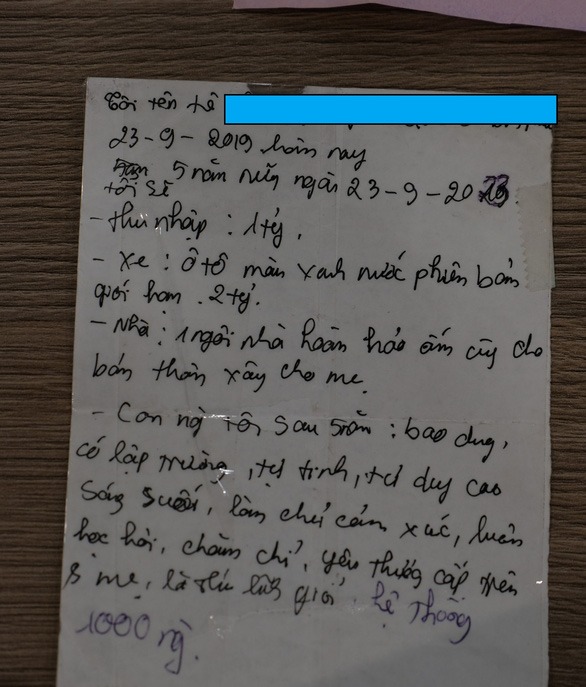 Tôi tên là
23-9-2019 hôm nay
5 năm nữa ngày 23-9-20
tôi sẽ
- thu nhập : 1 tỷ.
- Xe : Ô tô màu xanh nước phiên bản
giới hạn . 2 tỷ.
- Nhà : 1 ngôi nhà hoàn hảo ấm cúng cho
bản thân xây cho mẹ.
- Con ng tôi sau 5 năm : bao dung,
có lập trường, tự tin, tư duy cao
sáng suốt, làm chủ cảm xúc, luôn
học hỏi, chăm chỉ, yêu thương cấp trên
mẹ, là thủ lĩnh giỏi. hệ thống
1000 ng.